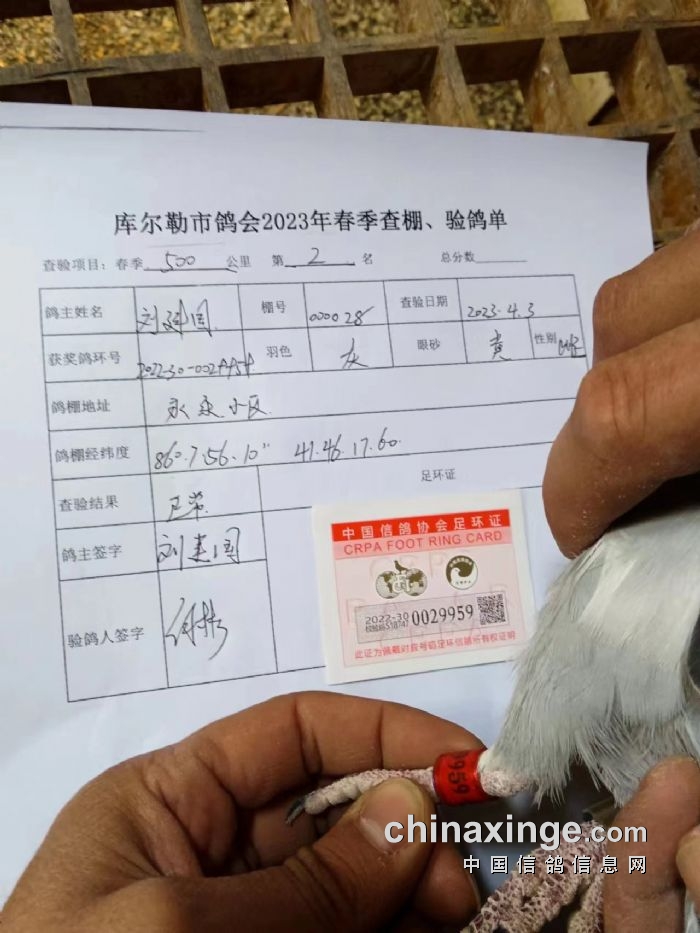 库尔勒市鸽会2023年春季查棚、验鸽单
查验项目：春季 500 公里 第 2 名 总分数
鸽主姓名 刘建国 棚号 000028 查验日期 2023.4.3
获奖鸽环号 2022-30-0029959 羽色 灰 眼砂 黄 性别 雌
鸽棚地址 永泰小区
鸽棚经纬度 86°.7.56.10" 41.46.17.60.
查验结果 正常 足环证
鸽主签字 刘建国
验鸽人签字
中国信鸽协会足环证
CRPA FOOT RING CARD
2022-30 0029959
此证为佩戴对应号码足环信鸽所有权证明
0959
chinaxinge.com
中国信鸽信息网